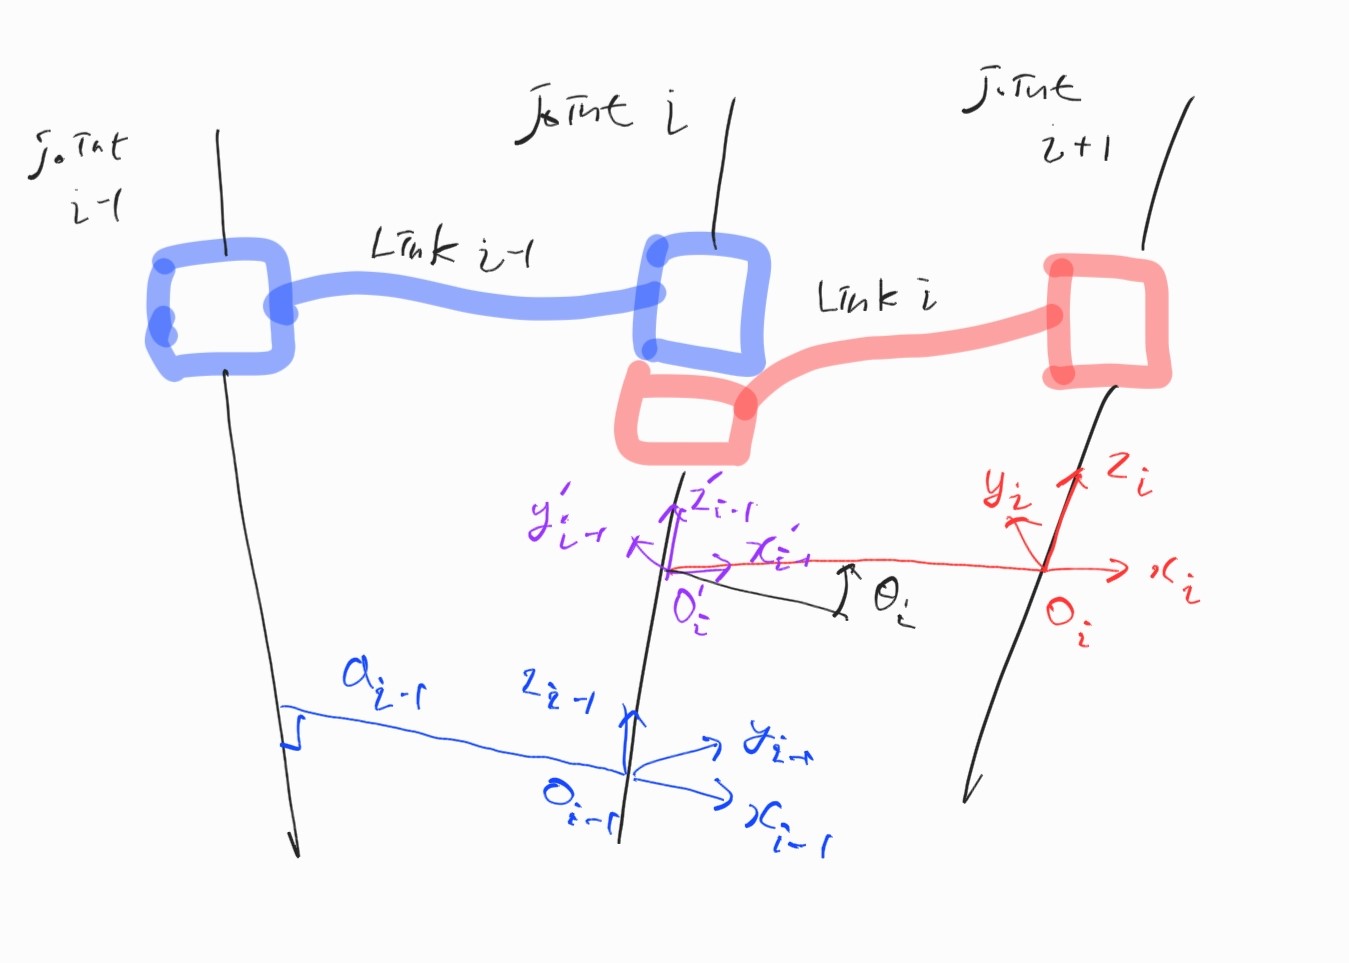 Joint
i-1
Joint i
Joint
i+1
Link i-1
Link i
y'i-1
z'i-1
x'i-1
O'i
θi
yi
zi
xi
Oi
ai-1
zi-1
yi-1
Oi-1
xi-1